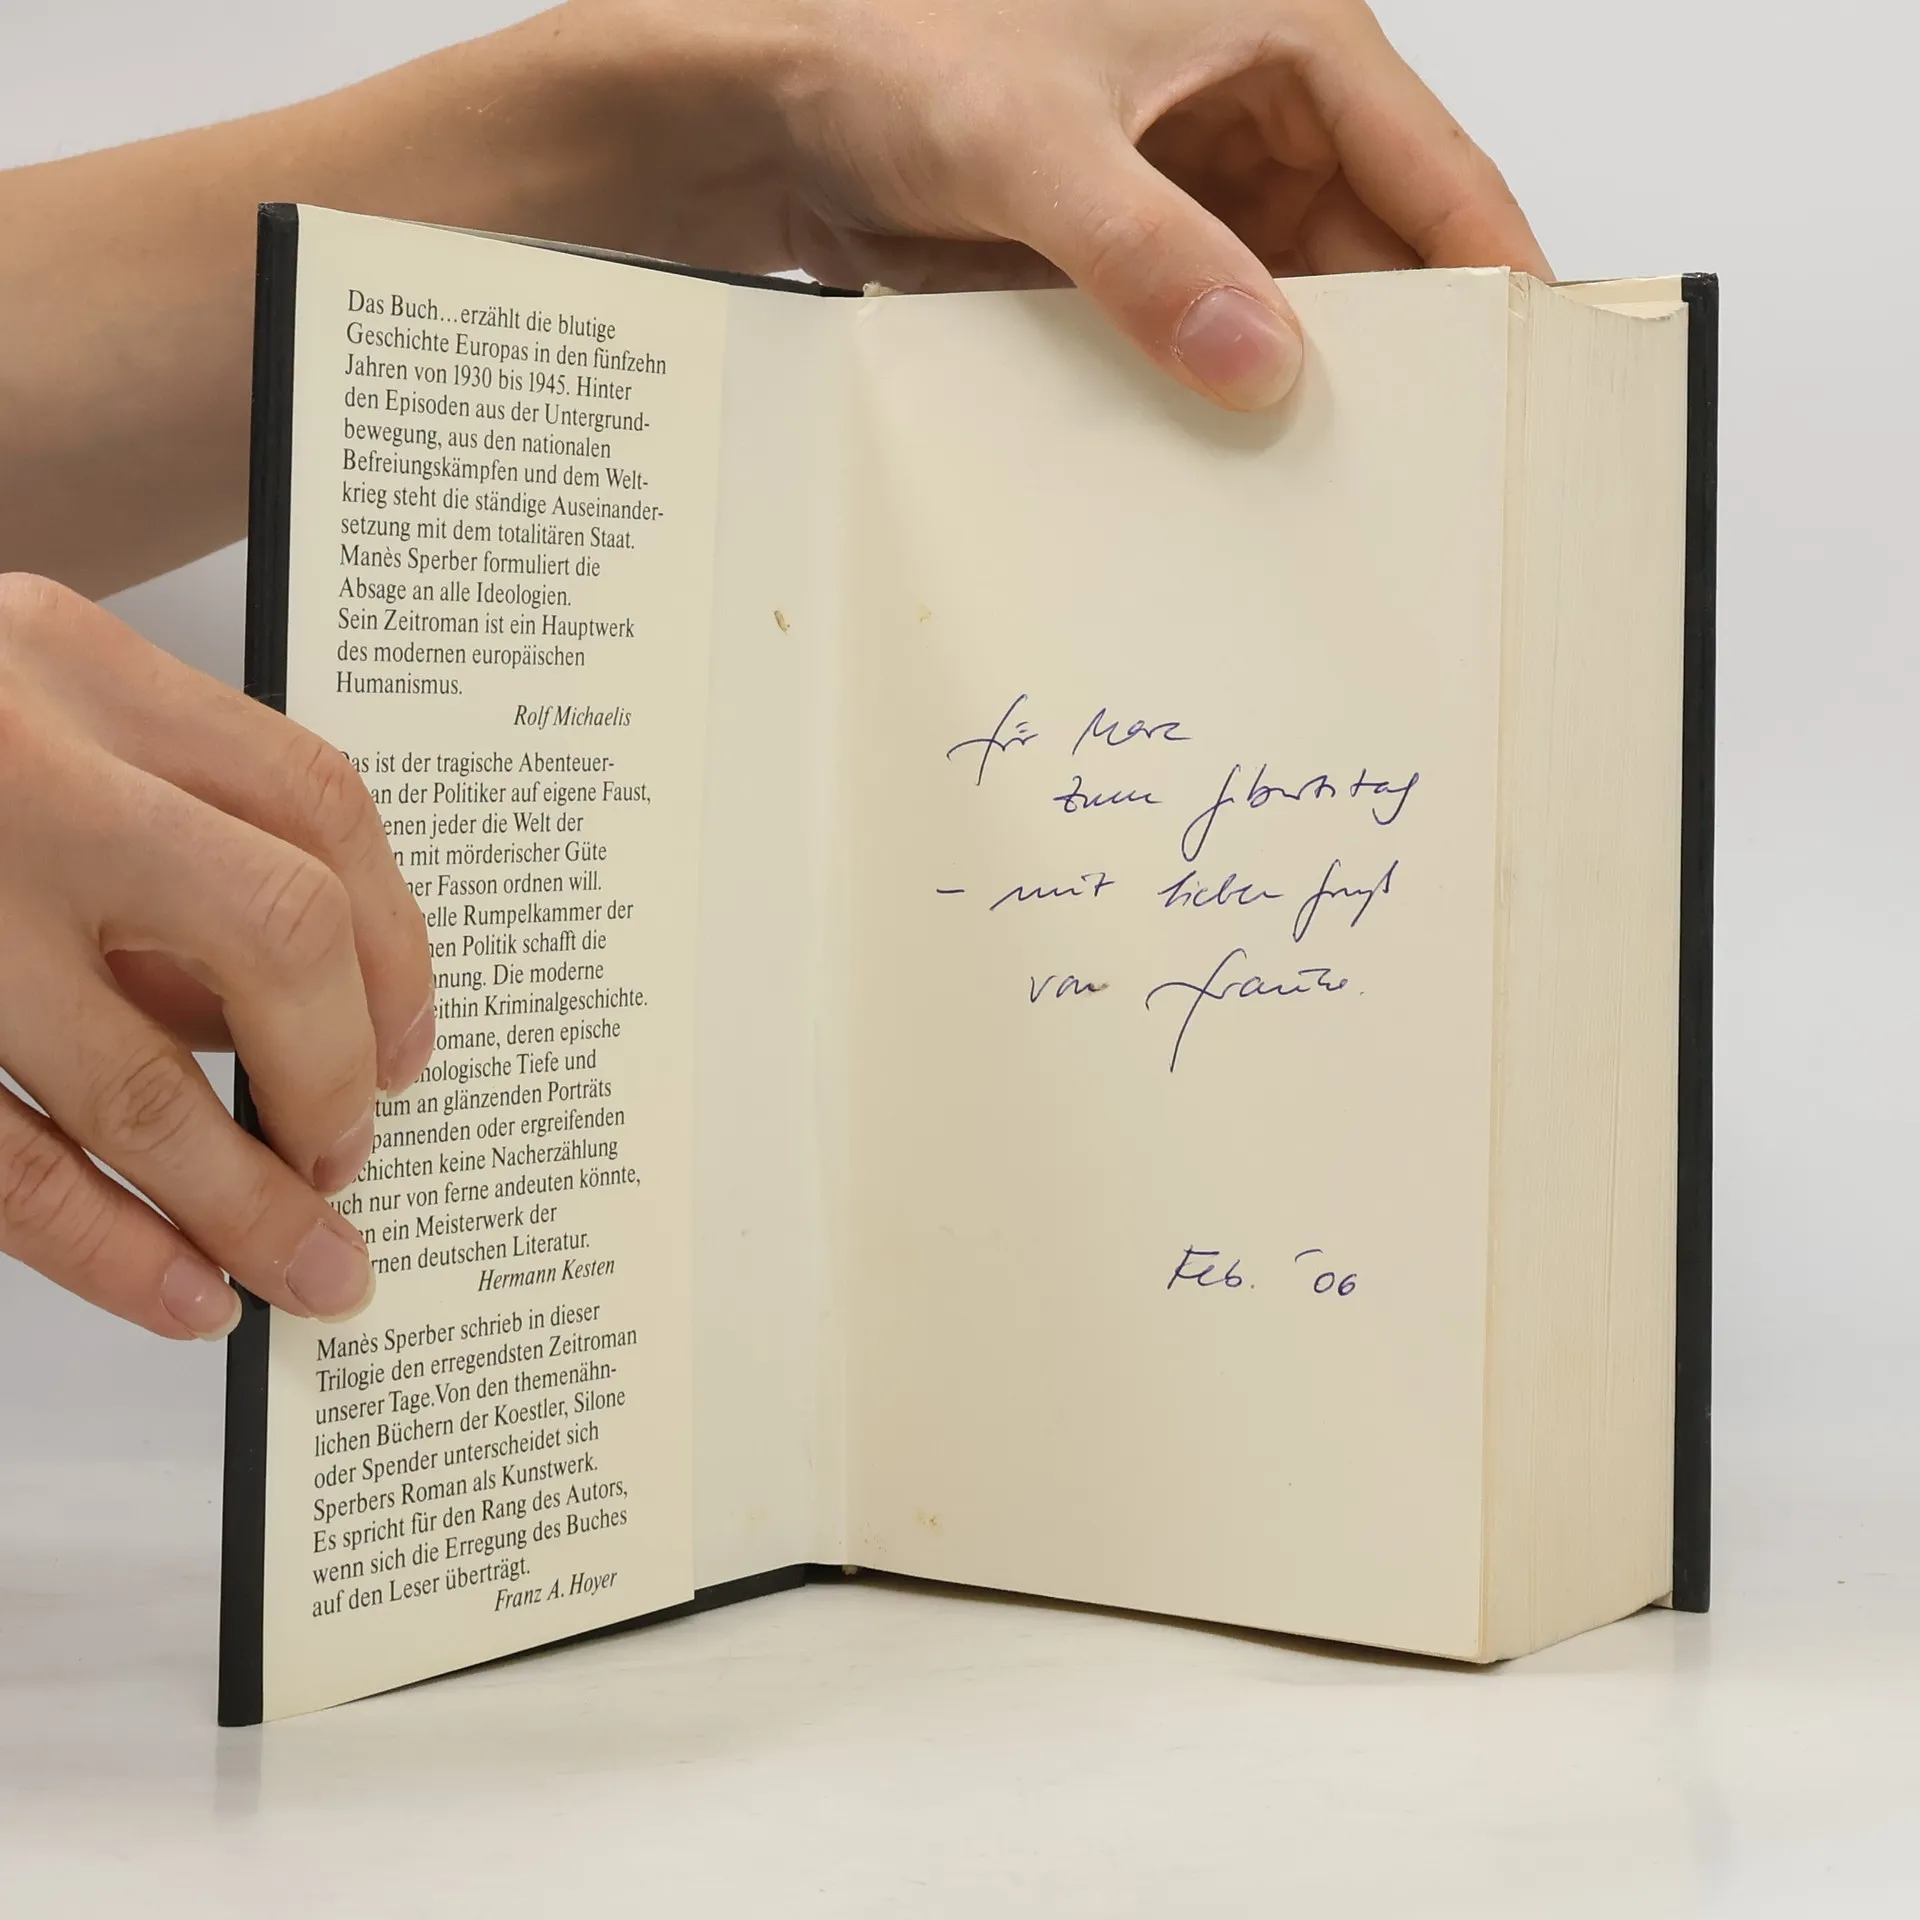 Das Buch...erzählt die blutige
Geschichte Europas in den fünfzehn
Jahren von 1930 bis 1945. Hinter
den Episoden aus der Untergrund-
bewegung, aus den nationalen
Befreiungskämpfen und dem Welt-
krieg steht die ständige Auseinander-
setzung mit dem totalitären Staat.
Manès Sperber formuliert die
Absage an alle Ideologien.
Sein Zeitroman ist ein Hauptwerk
des modernen europäischen
Humanismus.
Rolf Michaelis
Das ist der tragische Abenteuer-
an der Politiker auf eigene Faust,
enen jeder die Welt der
n mit mörderischer Güte
ner Fasson ordnen will.
elle Rumpelkammer der
hen Politik schafft die
nung. Die moderne
eithin Kriminalgeschichte.
omane, deren epische
hologische Tiefe und
tum an glänzenden Porträts
pannenden oder ergreifenden
chichten keine Nacherzählung
uch nur von ferne andeuten könnte,
en ein Meisterwerk der
rnen deutschen Literatur.
Hermann Kesten
Manès Sperber schrieb in dieser
Trilogie den erregendsten Zeitroman
unserer Tage.Von den themenähn-
lichen Büchern der Koestler, Silone
oder Spender unterscheidet sich
Sperbers Roman als Kunstwerk.
Es spricht für den Rang des Autors,
wenn sich die Erregung des Buches
auf den Leser überträgt.
Franz A. Hoyer
für Marc
zum Geburtstag
- mit lieben Gruß
von Frauke.
Feb. '06